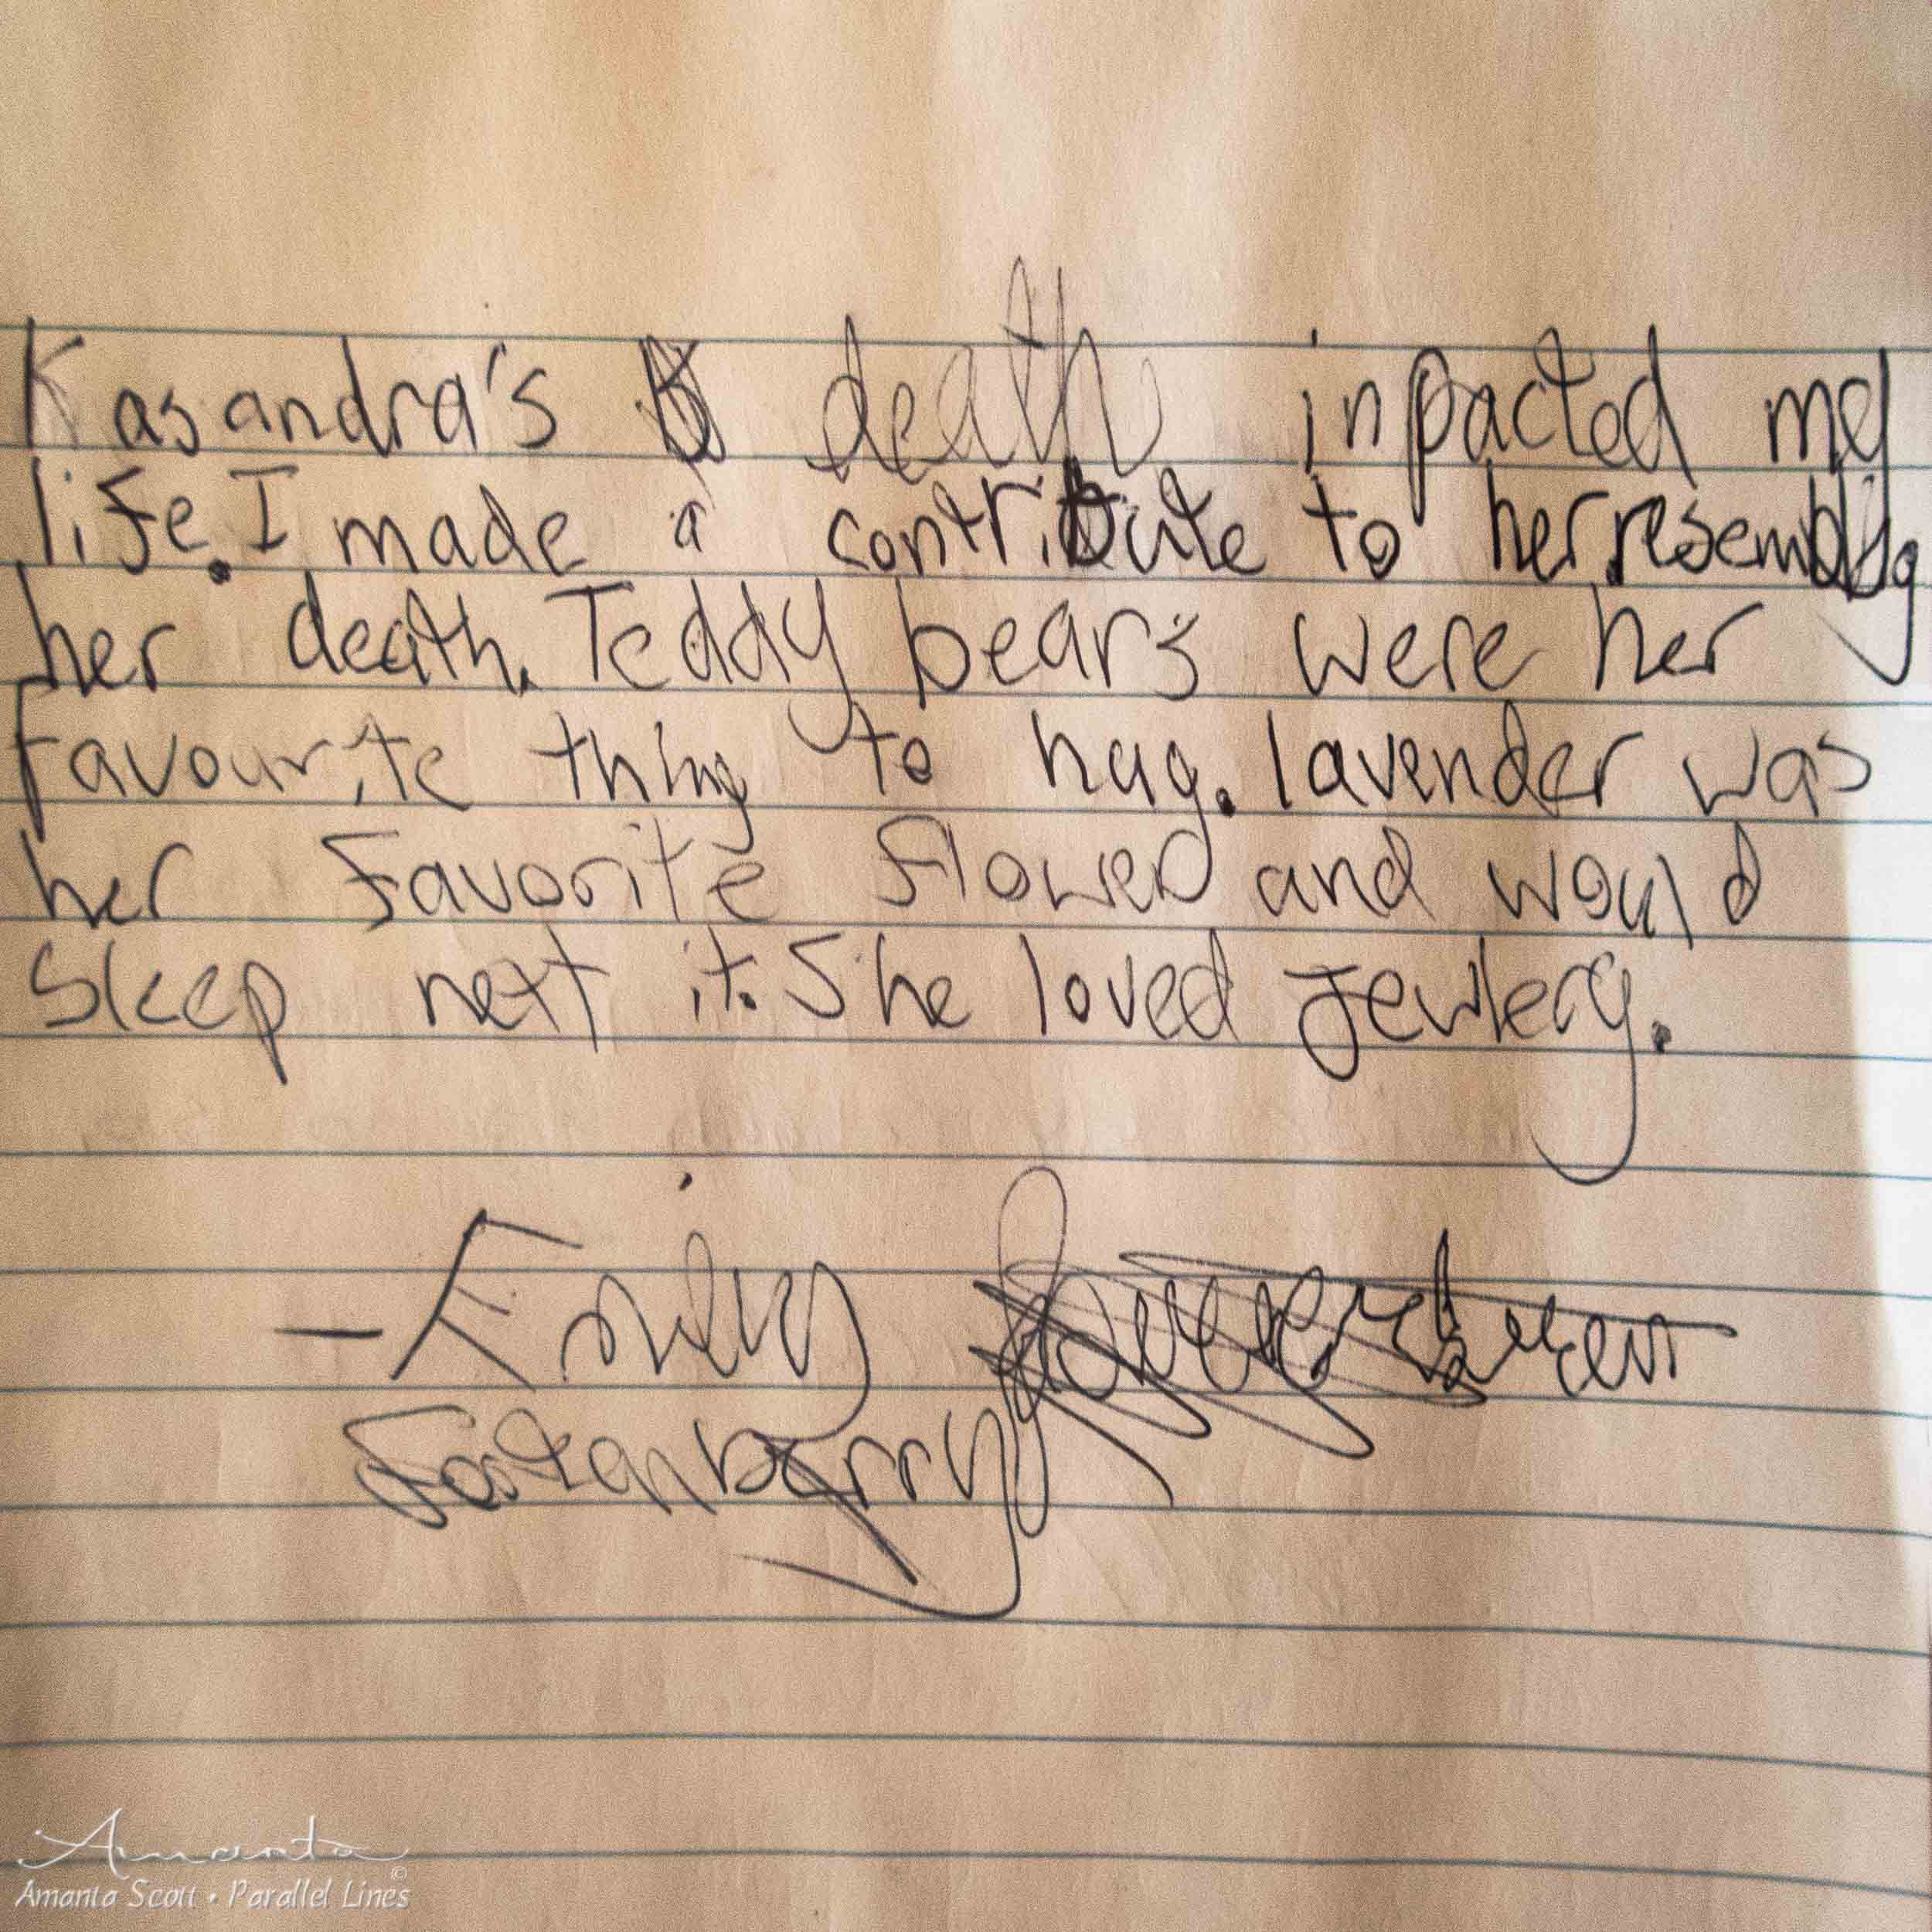 Kasandra's death inpacted my
life. I made a contribute to her resembly
her death. Teddy bears were her
favourite thing to hug. lavender was
her favorite flower and would
sleep next it. She loved Jewlery.
- Emily
Fastenberry
Amanta ©
Amanta Scott • Parallel Lines